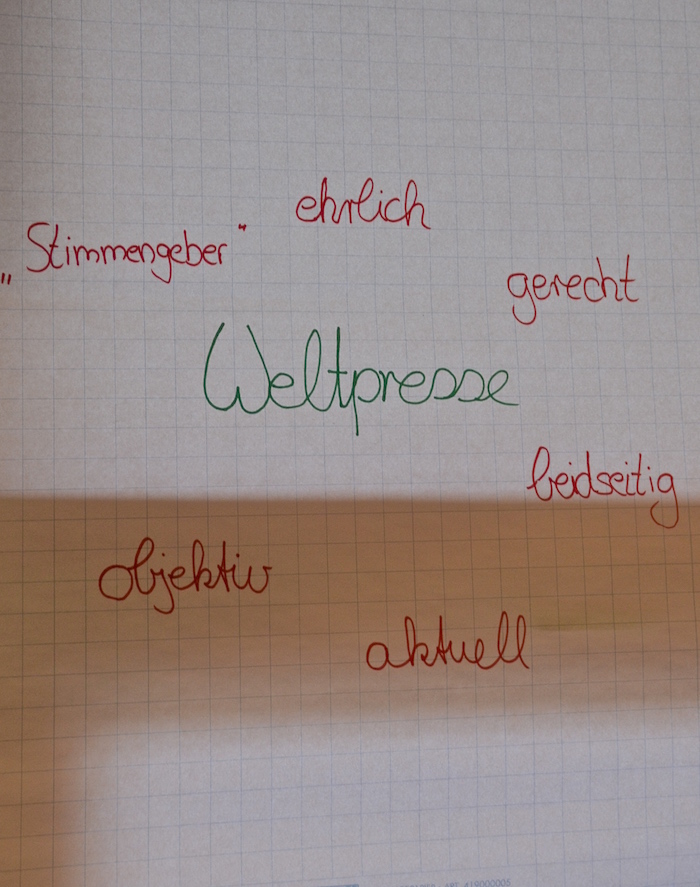 ehrlich
„Stimmengeber"
gerecht
Weltpresse
beidseitig
objektiv
aktuell